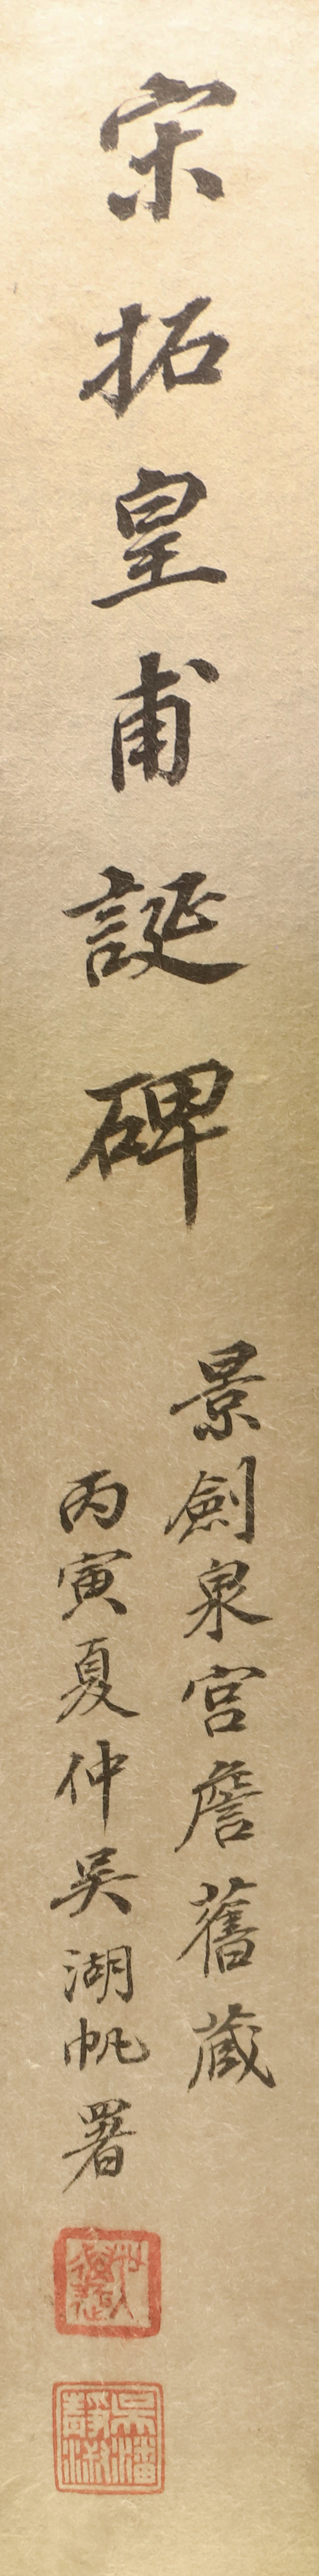 宋拓皇甫誕碑
景劍泉宮詹舊藏
丙寅夏仲吳湖帆署